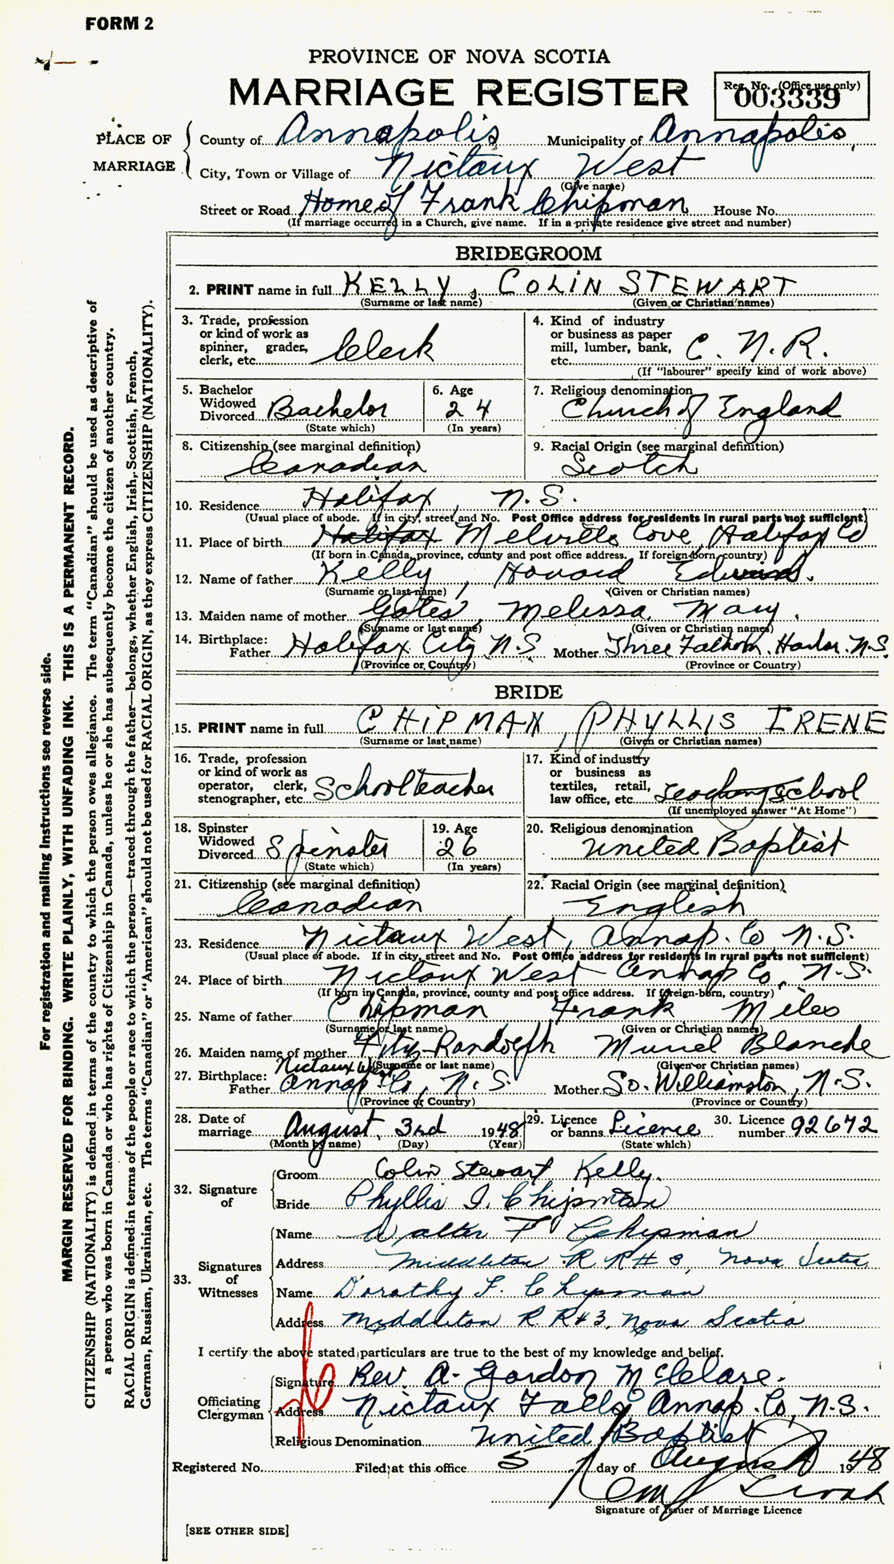 FORM 2
PROVINCE OF NOVA SCOTIA
MARRIAGE REGISTER
Reg. No. (Office use only)
003339
PLACE OF MARRIAGE
County of Annapolis Municipality of Annapolis
City, Town or Village of Nictaux West
(Give name)
Street or Road Home of Frank Chipman House No.
(If marriage occurred in a Church, give name. If in a private residence give street and number)
BRIDEGROOM
2. PRINT name in full KELLY, COLIN STEWART
(Surname or last name) (Given or Christian names)
3. Trade, profession or kind of work as spinner, grader, clerk, etc. Clerk
4. Kind of industry or business as paper mill, lumber, bank, etc. C. N. R.
(If "labourer" specify kind of work above)
5. Bachelor Widowed Divorced Bachelor
(State which)
6. Age 24
(In years)
7. Religious denomination Church of England
8. Citizenship (see marginal definition) Canadian
9. Racial Origin (see marginal definition) Scotch
10. Residence Halifax, N.S.
(Usual place of abode. If in city, street and No. Post Office address for residents in rural parts not sufficient)
11. Place of birth Halifax Melville Cove, Halifax Co
(If born in Canada, province, county and post office address. If foreign-born, country)
12. Name of father Kelly, Howard Edward.
(Surname or last name) (Given or Christian names)
13. Maiden name of mother Gates, Melissa Mary.
(Surname or last name) (Given or Christian names)
14. Birthplace: Father Halifax City N.S Mother Three Fathom Harbor N.S
(Province or Country) (Province or Country)
BRIDE
15. PRINT name in full CHIPMAN, PHYLLIS IRENE
(Surname or last name) (Given or Christian names)
16. Trade, profession or kind of work as operator, clerk, stenographer, etc. Schoolteacher
17. Kind of industry or business as textiles, retail, law office, etc. Teaching School
(If unemployed answer "At Home")
18. Spinster Widowed Divorced Spinster
(State which)
19. Age 26
(In years)
20. Religious denomination United Baptist
21. Citizenship (see marginal definition) Canadian
22. Racial Origin (see marginal definition) English
23. Residence Nictaux West, Annap. Co N.S.
(Usual place of abode. If in city, street and No. Post Office address for residents in rural parts not sufficient)
24. Place of birth Nictaux West Annap Co, N.S.
(If born in Canada, province, county and post office address. If foreign-born, country)
25. Name of father Chipman Frank Miles
(Surname or last name) (Given or Christian names)
26. Maiden name of mother Fitz-Randolph Muriel Blanche
(Surname or last name) (Given or Christian names)
27. Birthplace: Father Nictaux W. Annap Co, N.S. Mother So. Williamston, N.S.
(Province or Country) (Province or Country)
28. Date of marriage August 3rd 1948
(Month by name) (Day) (Year)
29. Licence or banns Licence
(State which)
30. Licence number 92672
32. Signature of
Groom Colin Stewart Kelly.
Bride Phyllis I. Chipman
33. Signatures of Witnesses
Name Walter F Chipman
Address Middleton R R # 3, Nova Scotia
Name Dorothy F. Chipman
Address Middleton R R #3, Nova Scotia
I certify the above stated particulars are true to the best of my knowledge and belief.
Officiating Clergyman
Signature Rev A. Gordon McClare.
Address Nictaux Falls, Annap. Co, N.S.
Religious Denomination United Baptist
Registered No. Filed at this office 5 day of August 1948
Signature of Issuer of Marriage Licence
[SEE OTHER SIDE]
For registration and mailing instructions see reverse side.
MARGIN RESERVED FOR BINDING. WRITE PLAINLY, WITH UNFADING INK. THIS IS A PERMANENT RECORD.
CITIZENSHIP (NATIONALITY) is defined in terms of the country to which the person owes allegiance. The term "Canadian" should be used as descriptive of
a person who was born in Canada or who has rights of Citizenship in Canada, unless he or she has subsequently become the citizen of another country.
RACIAL ORIGIN is defined in terms of the people or race to which the person—traced through the father—belongs, whether English, Irish, Scottish, French,
German, Russian, Ukrainian, etc. The terms "Canadian" or "American" should not be used for RACIAL ORIGIN, as they express CITIZENSHIP (NATIONALITY).